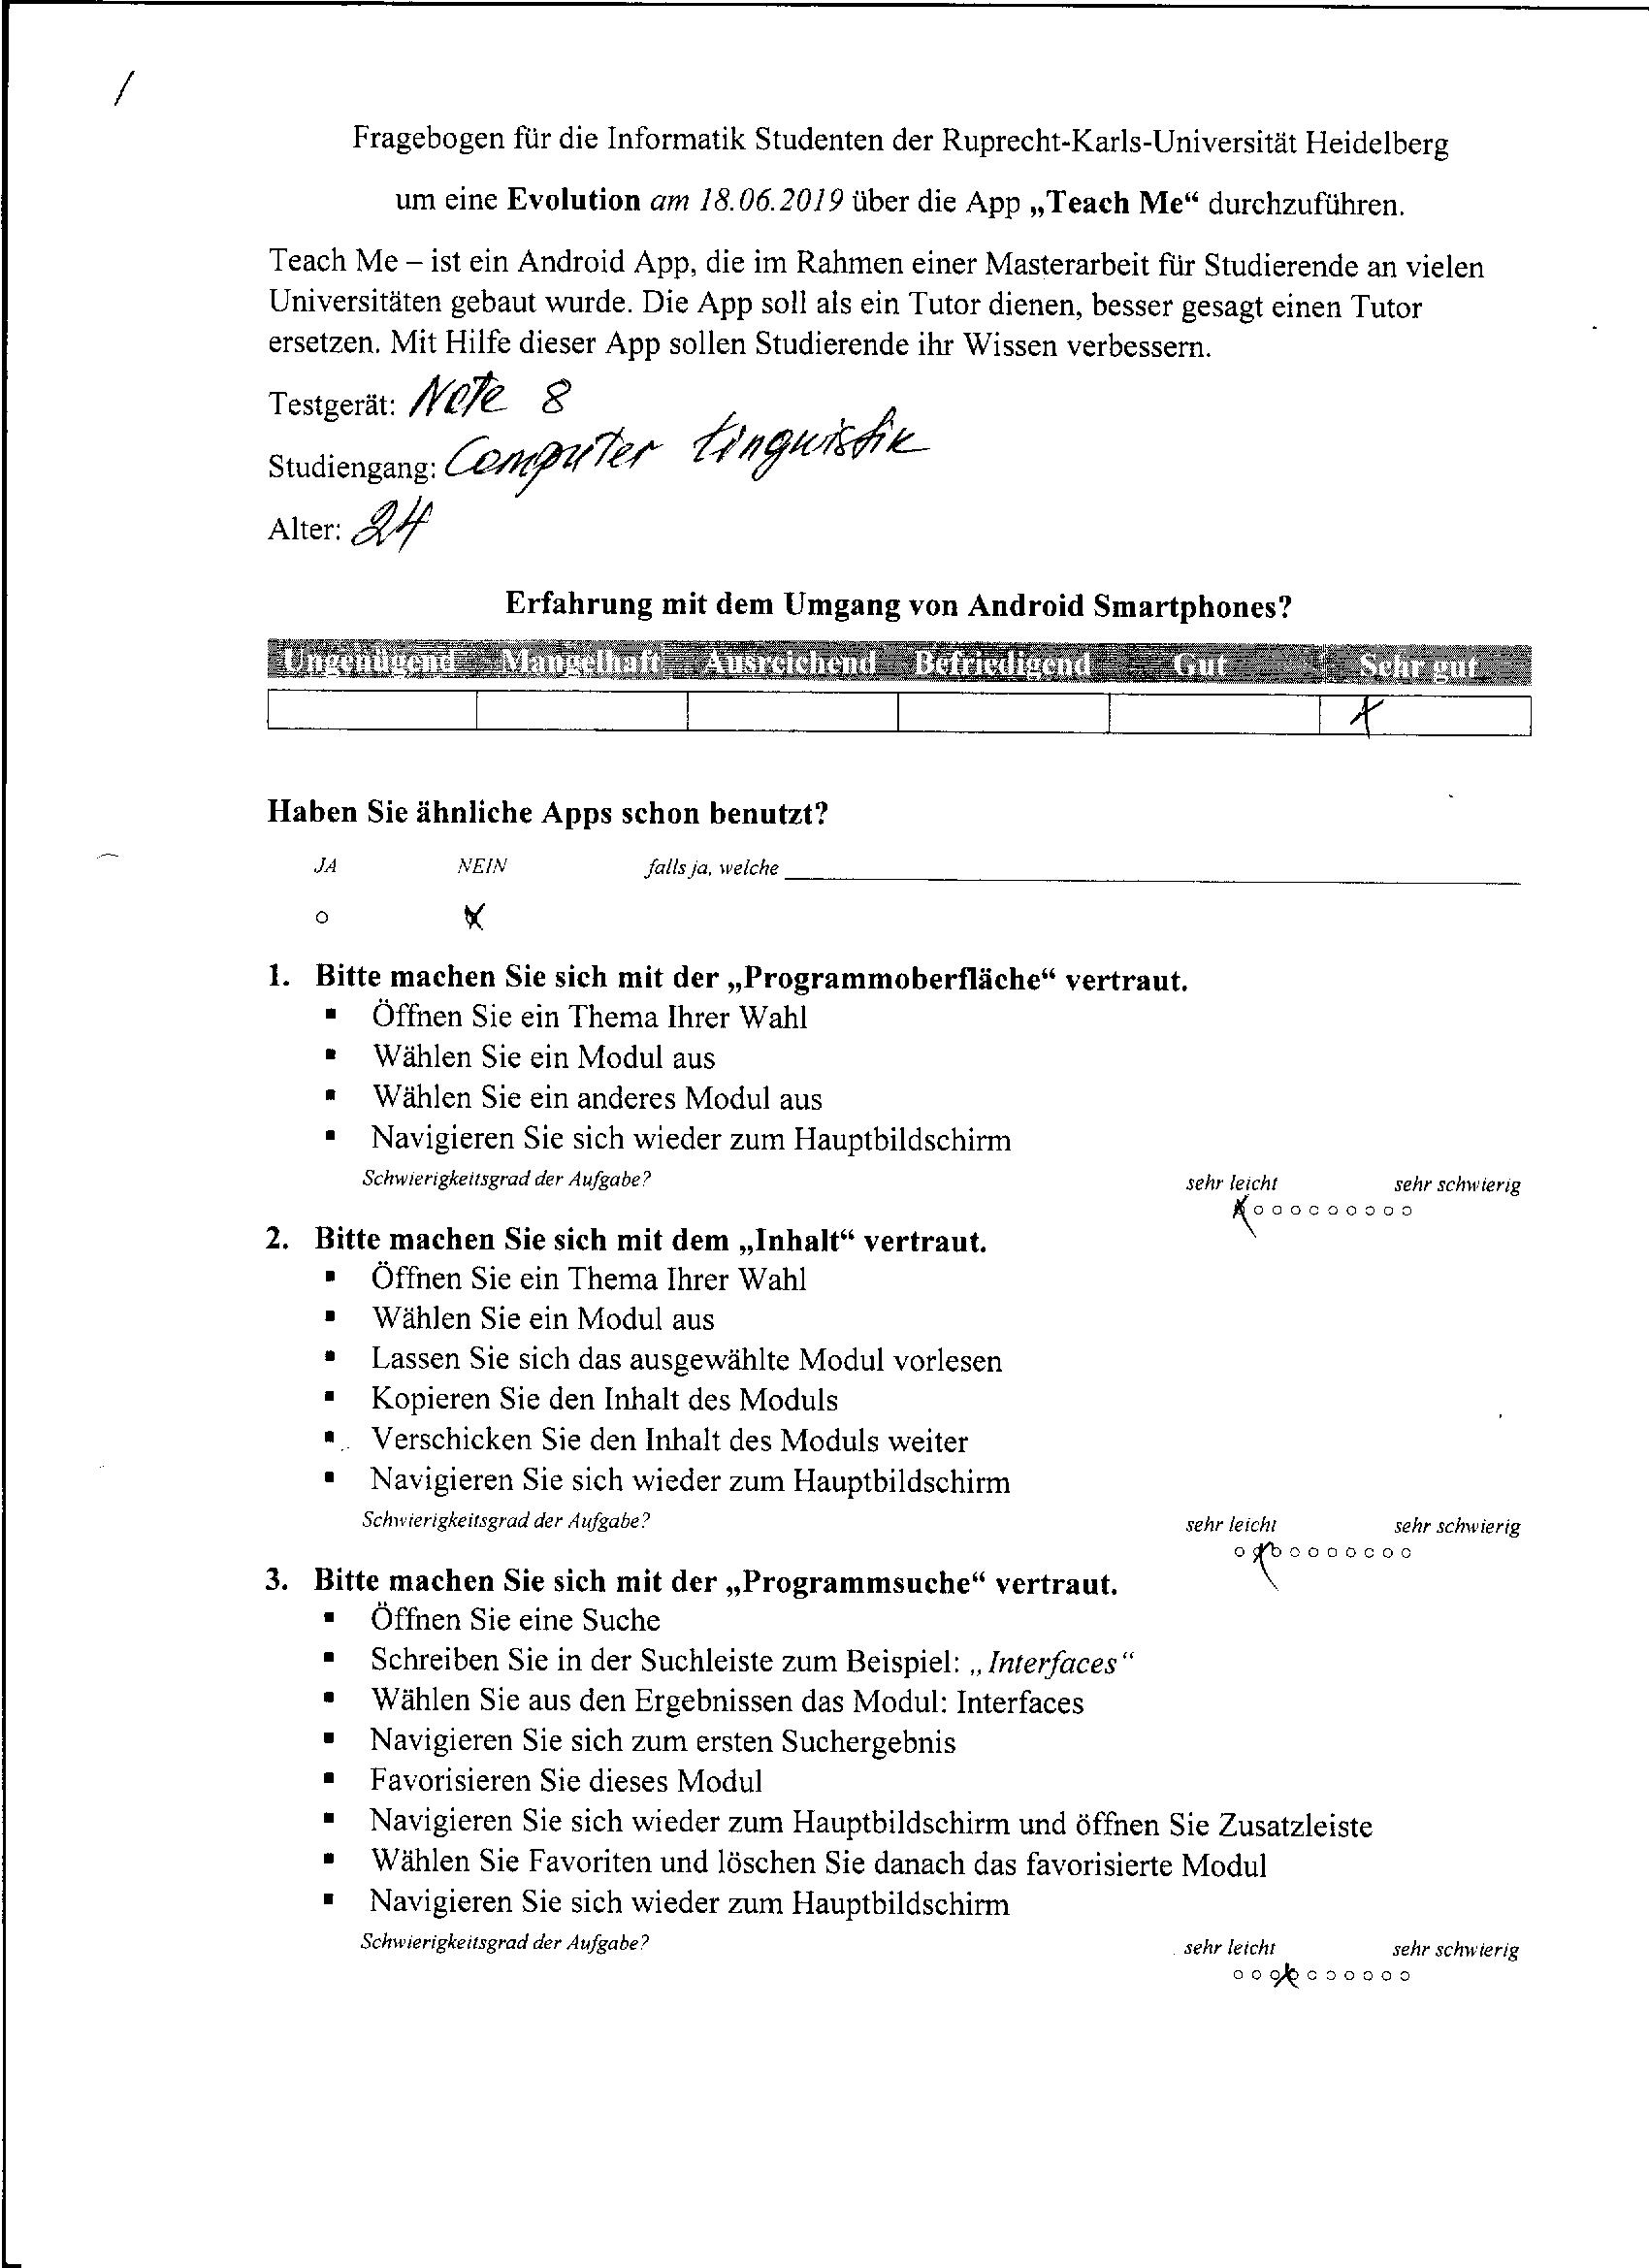 /
Fragebogen für die Informatik Studenten der Ruprecht-Karls-Universität Heidelberg
um eine Evolution am 18.06.2019 über die App „Teach Me“ durchzuführen.
Teach Me – ist ein Android App, die im Rahmen einer Masterarbeit für Studierende an vielen
Universitäten gebaut wurde. Die App soll als ein Tutor dienen, besser gesagt einen Tutor
ersetzen. Mit Hilfe dieser App sollen Studierende ihr Wissen verbessern.
Testgerät: Note 8
Studiengang: Computer Linguistik
Alter: 24
Erfahrung mit dem Umgang von Android Smartphones?
Ungenügend Mangelhaft Ausreichend Befriedigend Gut Sehr gut
x
Haben Sie ähnliche Apps schon benutzt?
JA NEIN falls ja, welche
○ x
1. Bitte machen Sie sich mit der „Programmoberfläche“ vertraut.
▪ Öffnen Sie ein Thema Ihrer Wahl
▪ Wählen Sie ein Modul aus
▪ Wählen Sie ein anderes Modul aus
▪ Navigieren Sie sich wieder zum Hauptbildschirm
Schwierigkeitsgrad der Aufgabe? sehr leicht sehr schwierig
2. Bitte machen Sie sich mit dem „Inhalt“ vertraut.
▪ Öffnen Sie ein Thema Ihrer Wahl
▪ Wählen Sie ein Modul aus
▪ Lassen Sie sich das ausgewählte Modul vorlesen
▪ Kopieren Sie den Inhalt des Moduls
▪ Verschicken Sie den Inhalt des Moduls weiter
▪ Navigieren Sie sich wieder zum Hauptbildschirm
Schwierigkeitsgrad der Aufgabe? sehr leicht sehr schwierig
3. Bitte machen Sie sich mit der „Programmsuche“ vertraut.
▪ Öffnen Sie eine Suche
▪ Schreiben Sie in der Suchleiste zum Beispiel: „Interfaces“
▪ Wählen Sie aus den Ergebnissen das Modul: Interfaces
▪ Navigieren Sie sich zum ersten Suchergebnis
▪ Favorisieren Sie dieses Modul
▪ Navigieren Sie sich wieder zum Hauptbildschirm und öffnen Sie Zusatzleiste
▪ Wählen Sie Favoriten und löschen Sie danach das favorisierte Modul
▪ Navigieren Sie sich wieder zum Hauptbildschirm
Schwierigkeitsgrad der Aufgabe? sehr leicht sehr schwierig